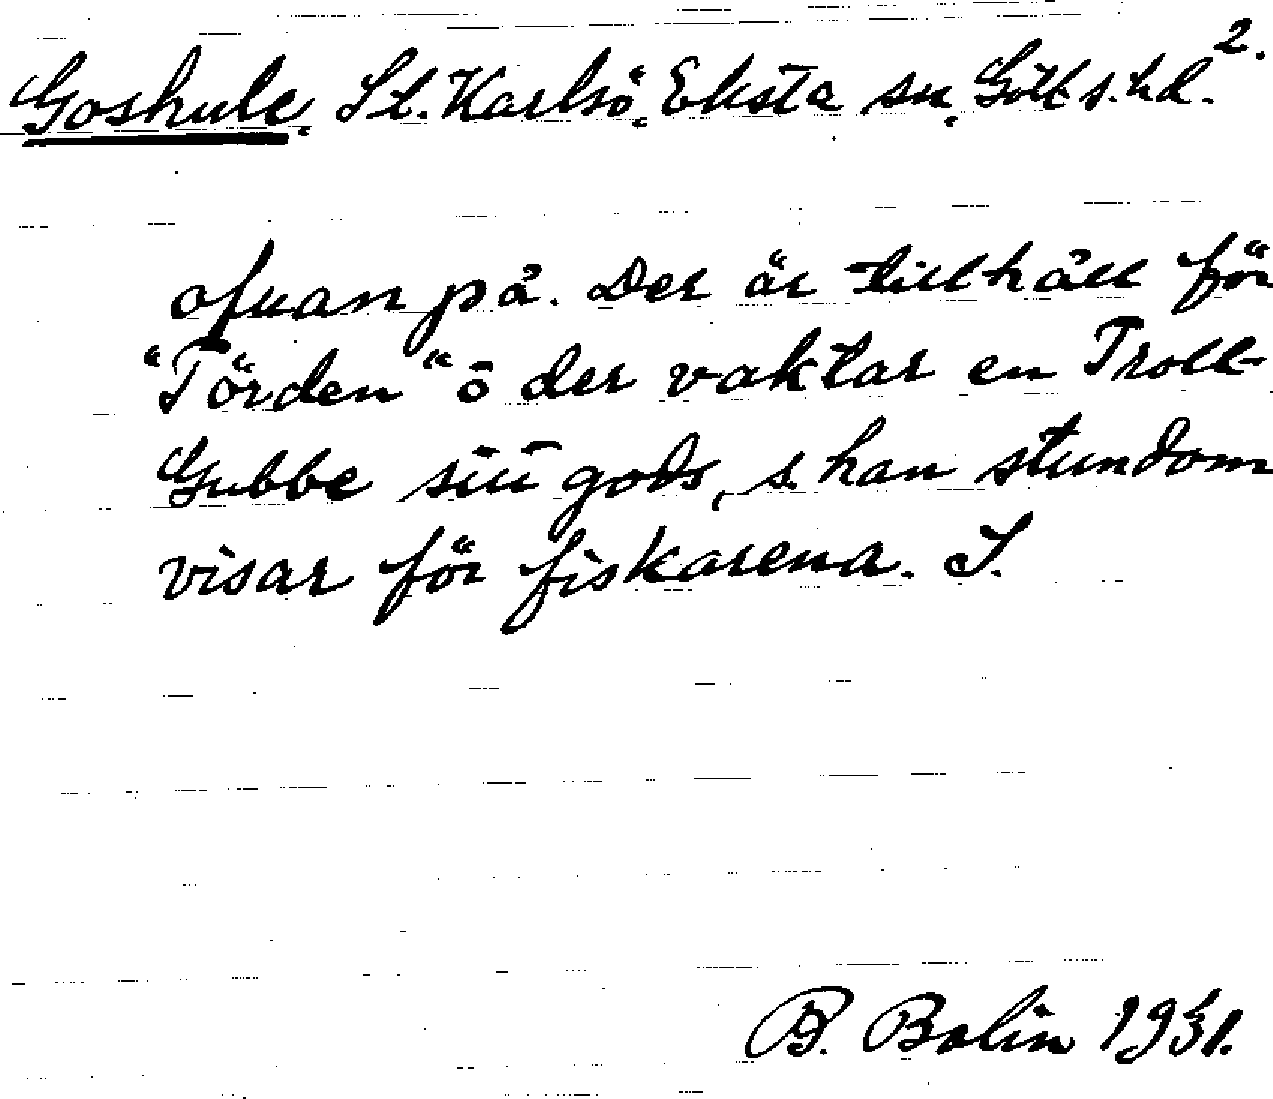 Goshule. St. Karlsö. Eksta sn. Gotl. s. hd. 2.
ofvan på. Der är tillhåll för
"Törden" ō der vaktar en Troll-
Gubbe siū gods, s. han stundom
visar för fiskarena. S.
B. Bolin 1931.